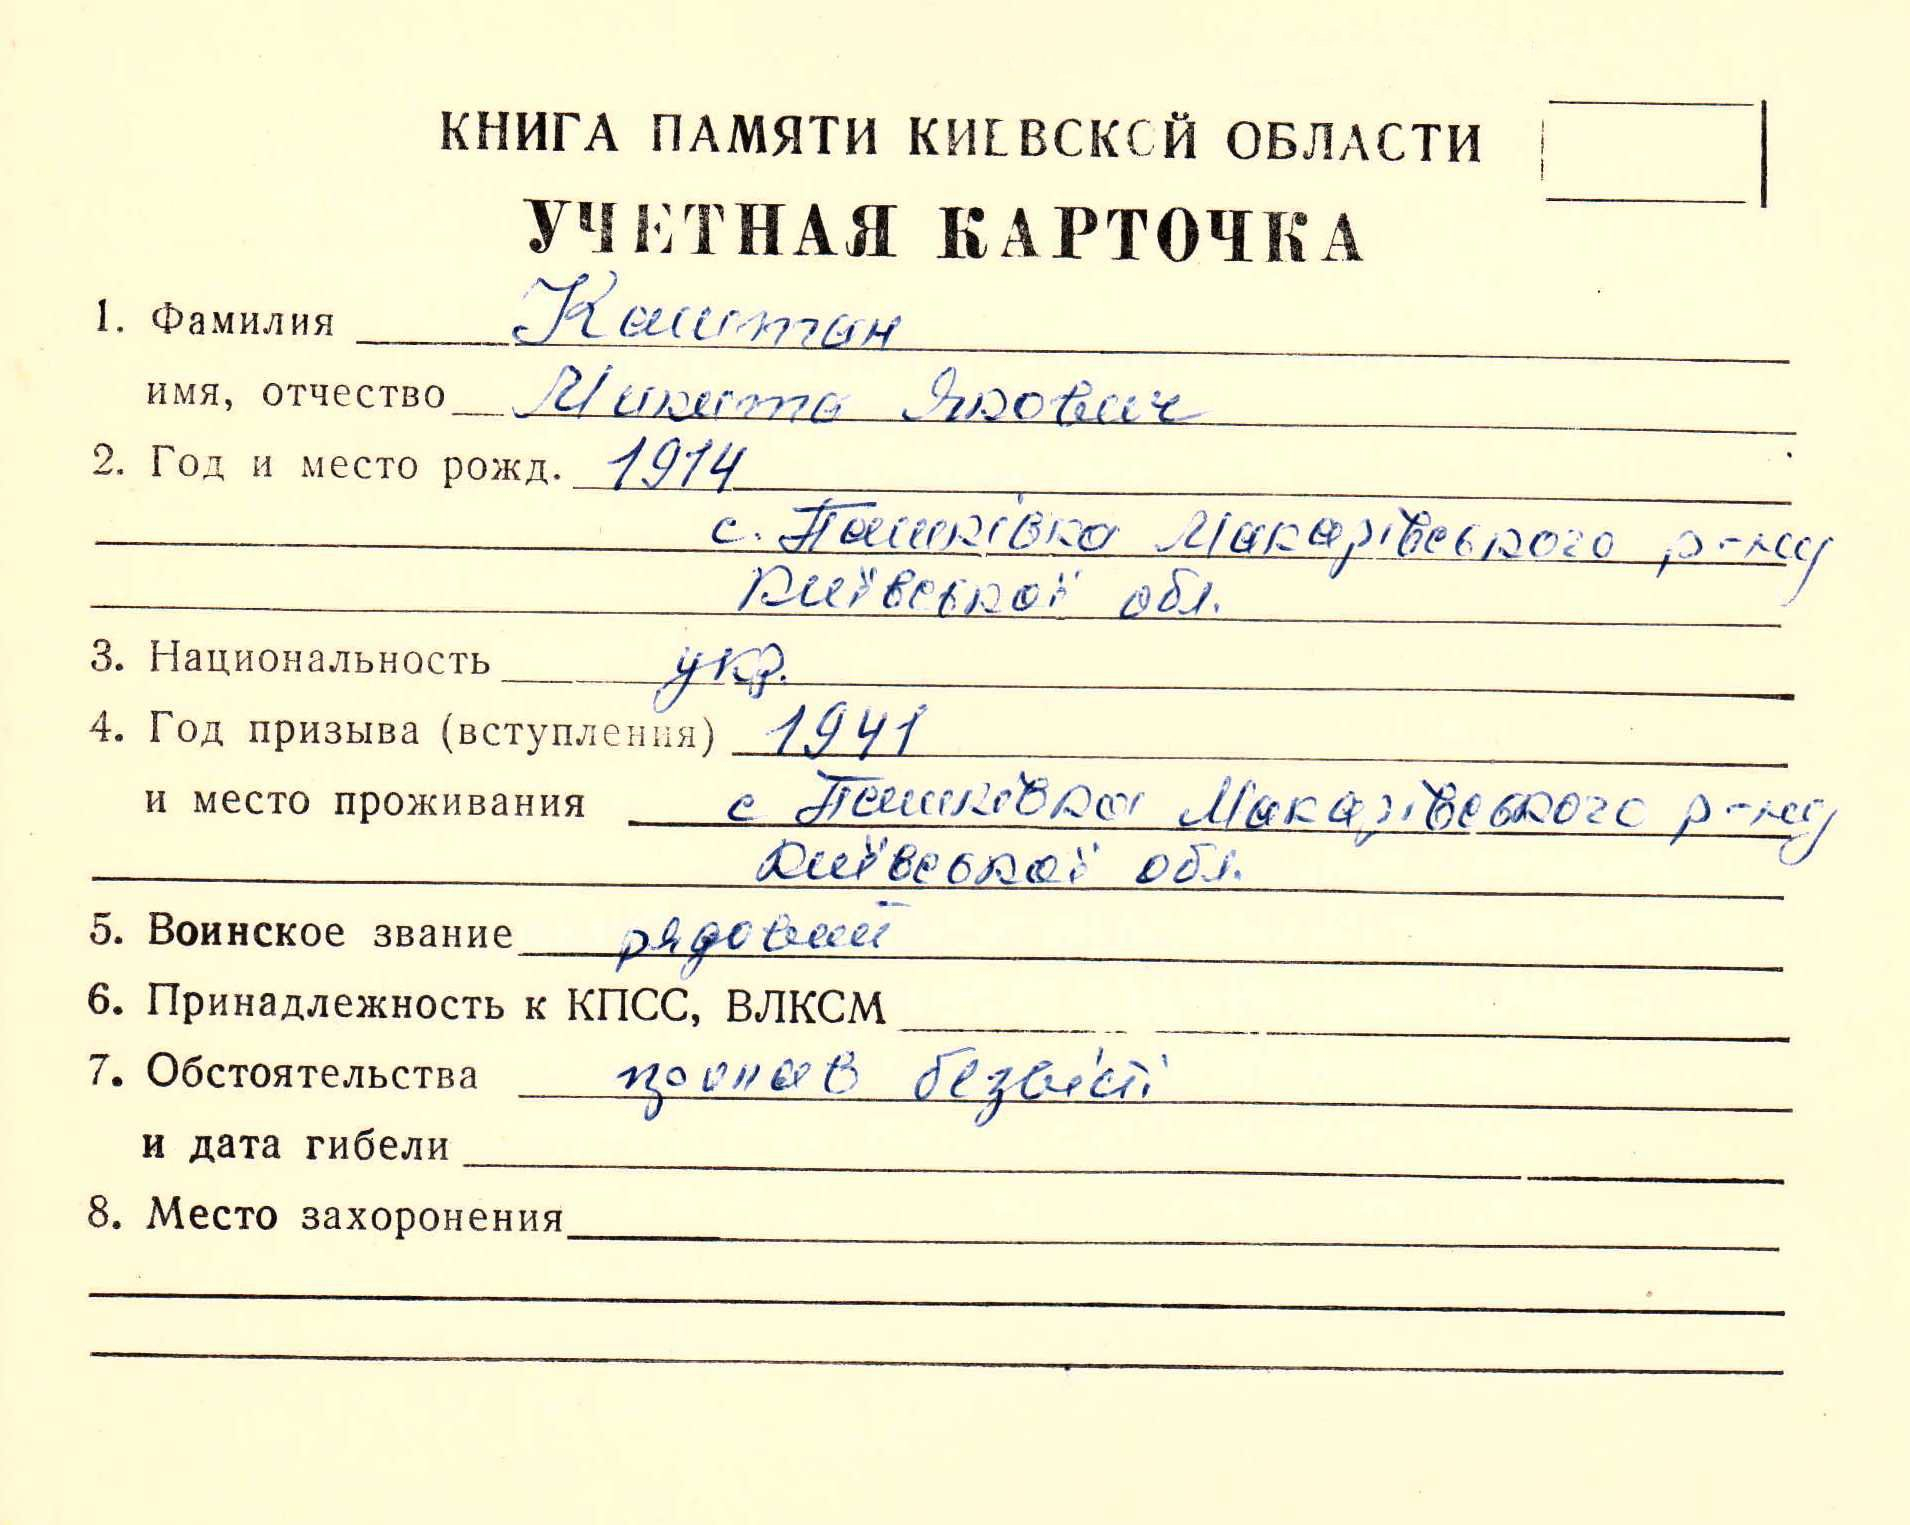 КНИГА ПАМЯТИ КИЕВСКОЙ ОБЛАСТИ
УЧЕТНАЯ КАРТОЧКА
1. Фамилия Каштан
имя, отчество Микита Якович
2. Год и место рожд. 1914
с. Пашківка Макарівського р-ну
Київської обл.
3. Национальность укр.
4. Год призыва (вступления) 1941
и место проживания с Пашківка Макарівського р-ну
Київської обл.
5. Воинское звание рядовий
6. Принадлежность к КПСС, ВЛКСМ
7. Обстоятельства пропав безвісті
и дата гибели
8. Место захоронения